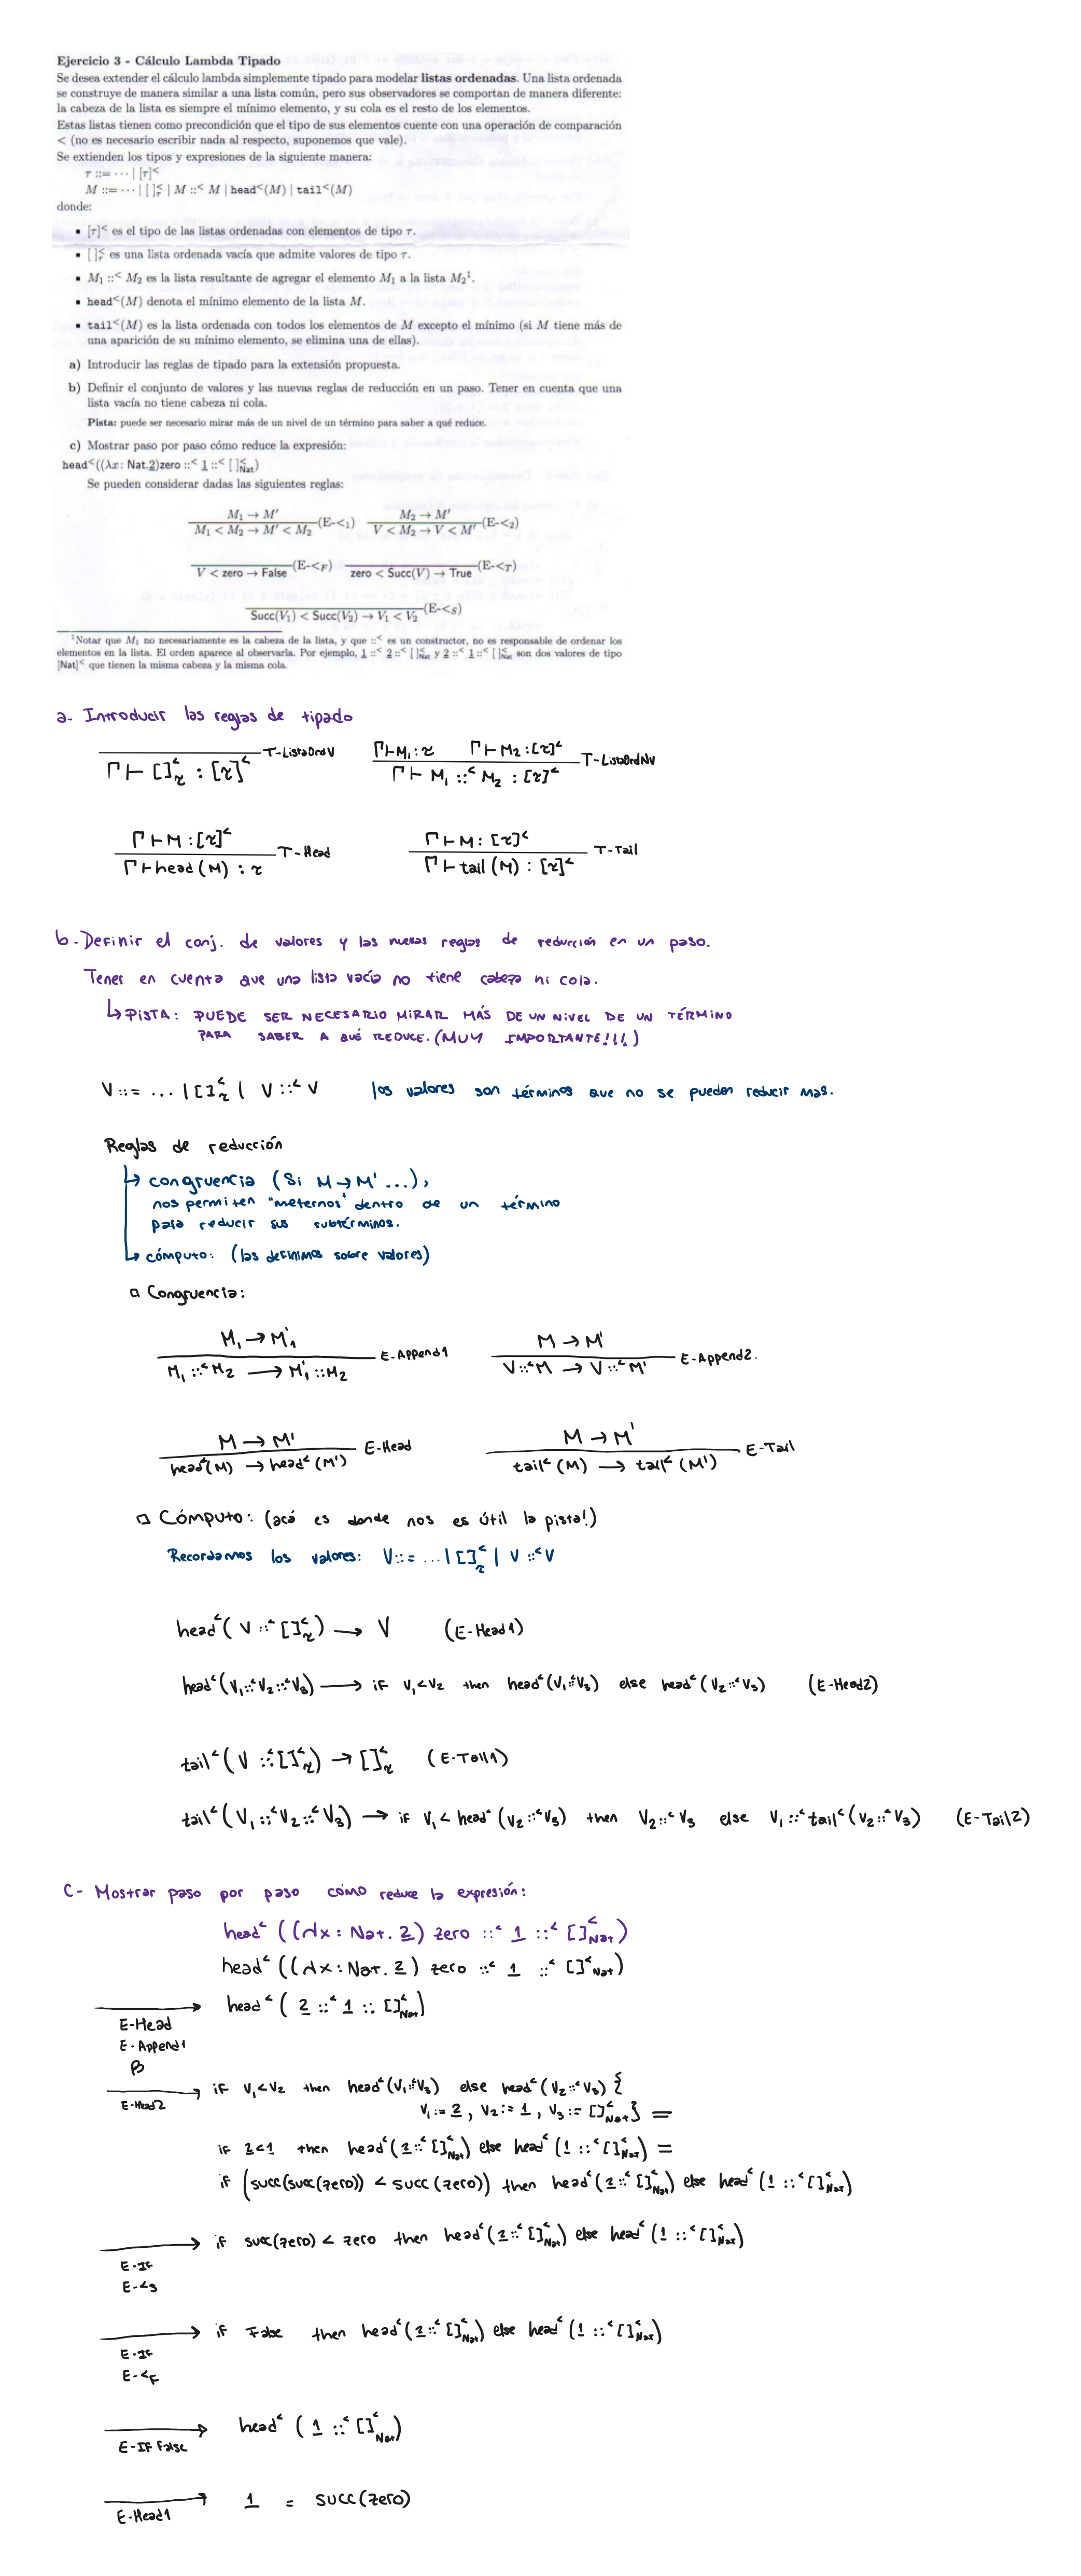 Ejercicio 3 - Cálculo Lambda Tipado
Se desea extender el cálculo lambda simplemente tipado para modelar listas ordenadas. Una lista ordenada
se construye de manera similar a una lista común, pero sus observadores se comportan de manera diferente:
la cabeza de la lista es siempre el mínimo elemento, y su cola es el resto de los elementos.
Estas listas tienen como precondición que el tipo de sus elementos cuente con una operación de comparación
< (no es necesario escribir nada al respecto, suponemos que vale).
Se extienden los tipos y expresiones de la siguiente manera:
τ ::= ··· | [τ]<
M ::= ··· | [ ]τ< | M ::< M | head<(M) | tail<(M)
donde:
▪ [τ]< es el tipo de las listas ordenadas con elementos de tipo τ.
▪ [ ]τ< es una lista ordenada vacía que admite valores de tipo τ.
▪ M1 ::< M2 es la lista resultante de agregar el elemento M1 a la lista M2¹.
▪ head<(M) denota el mínimo elemento de la lista M.
▪ tail<(M) es la lista ordenada con todos los elementos de M excepto el mínimo (si M tiene más de
una aparición de su mínimo elemento, se elimina una de ellas).
a) Introducir las reglas de tipado para la extensión propuesta.
b) Definir el conjunto de valores y las nuevas reglas de reducción en un paso. Tener en cuenta que una
lista vacía no tiene cabeza ni cola.
Pista: puede ser necesario mirar más de un nivel de un término para saber a qué reduce.
c) Mostrar paso por paso cómo reduce la expresión:
head<((λx: Nat.2)zero ::< 1 ::< [ ]Nat<)
Se pueden considerar dadas las siguientes reglas:
M1 → M' M2 → M'
M1 < M2 → M' < M2 (E-<1) V < M2 → V < M' (E-<2)
V < zero → False (E-<F) zero < Succ(V) → True (E-<T)
Succ(V1) < Succ(V2) → V1 < V2 (E-<S)
¹Notar que M1 no necesariamente es la cabeza de la lista, y que ::< es un constructor, no es responsable de ordenar los
elementos en la lista. El orden aparece al observarla. Por ejemplo, 1 ::< 2 ::< [ ]Nat< y 2 ::< 1 ::< [ ]Nat< son dos valores de tipo
[Nat]< que tienen la misma cabeza y la misma cola.
a- Introducir las reglas de tipado
Γ ⊢ []τ< : [τ]< T-ListaOrdV
Γ⊢M1 : τ Γ⊢M2 : [τ]<
Γ ⊢ M1 ::< M2 : [τ]< T-ListaOrdNV
Γ ⊢ M : [τ]< Γ ⊢ M : [τ]<
Γ ⊢ head(M) : τ T-Head Γ ⊢ tail(M) : [τ]< T-Tail
b- Definir el conj. de valores y las nuevas reglas de reducción en un paso.
Tener en cuenta que una lista vacía no tiene cabeza ni cola.
↳ PISTA: PUEDE SER NECESARIO MIRAR MÁS DE UN NIVEL DE UN TÉRMINO
PARA SABER A QUÉ REDUCE. (MUY IMPORTANTE!!!)
V ::= ... | []τ< | V ::< V los valores son términos que no se pueden reducir mas.
Reglas de reducción
↳ congruencia (Si M → M' ...),
nos permiten "meternos" dentro de un término
para reducir sus subtérminos.
↳ cómputo: (las definimos sobre valores)
□ Congruencia:
M1 → M1' M → M'
M1 ::< M2 → M1' :: M2 E-Append1 V ::< M → V ::< M' E-Append2.
M → M' M → M'
head<(M) → head<(M') E-Head tail<(M) → tail<(M') E-Tail
□ Cómputo: (acá es donde nos es útil la pista!)
Recordamos los valores: V ::= ... | []τ< | V ::< V
head<(V ::< []τ<) → V (E-Head1)
head<(V1 ::< V2 ::< V3) → if V1 < V2 then head<(V1 ::< V3) else head<(V2 ::< V3) (E-Head2)
tail<(V ::< []τ<) → []τ< (E-Tail1)
tail<(V1 ::< V2 ::< V3) → if V1 < head<(V2 ::< V3) then V2 ::< V3 else V1 ::< tail<(V2 ::< V3) (E-Tail2)
C- Mostrar paso por paso cómo reduce la expresión:
head<((λx : Nat. 2) zero ::< 1 ::< []Nat<)
head<((λx : Nat. 2) zero ::< 1 ::< []<Nat)
→ head<(2 ::< 1 :: []Nat<)
E-Head
E-Append1
β
→ if V1 < V2 then head<(V1 ::< V3) else head<(V2 ::< V3) {
E-Head2
V1 := 2, V2 := 1, V3 := []Nat<} =
if 2 < 1 then head<(2 ::< []Nat<) else head<(1 ::< []Nat<) =
if (succ(succ(zero)) < succ(zero)) then head<(2 ::< []Nat<) else head<(1 ::< []Nat<)
→ if succ(zero) < zero then head<(2 ::< []Nat<) else head<(1 ::< []Nat<)
E-If
E-<S
→ if False then head<(2 ::< []Nat<) else head<(1 ::< []Nat<)
E-If
E-<F
→ head<(1 ::< []Nat<)
E-IF False
→ 1 = succ(zero)
E-Head1